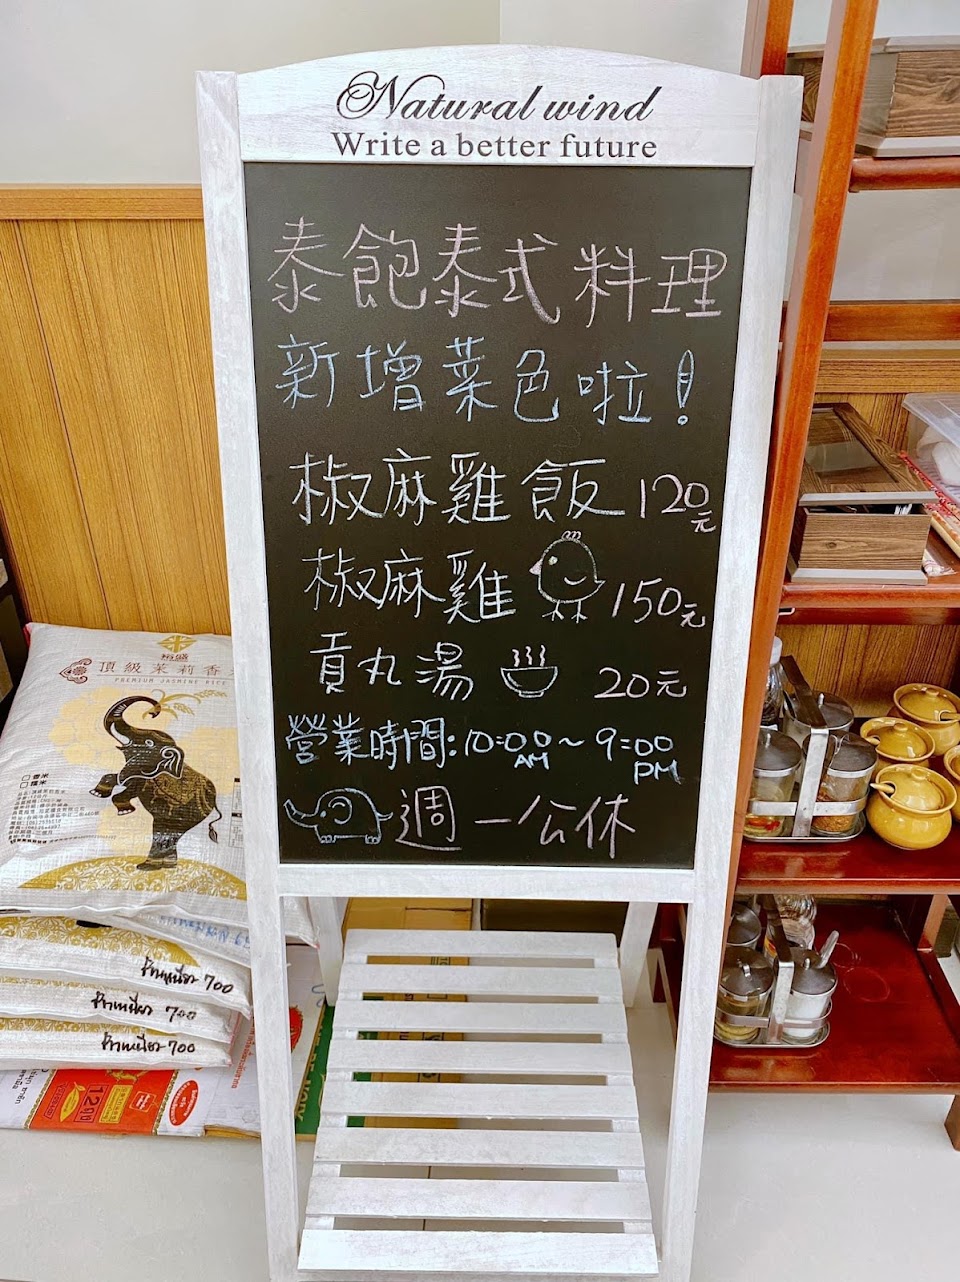 Natural wind
Write a better future
泰飽泰式料理
新增菜色啦!
椒麻雞飯 120元
椒麻雞 150元
貢丸湯 20元
營業時間:10:00AM~9:00PM
週一公休
頂級茉莉香
PREMIUM JASMINE RICE
香米
糯米
ข้าวเหนียว 700
ข้าวเหนียว 700
ข้าวเหนียว 700